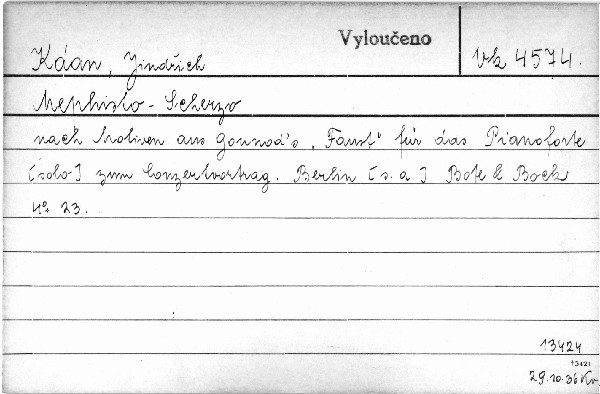 Vyloučeno
Káan, Jindřich
Vk 4574.
Mephisto - Scherzo
nach Motiven aus Gounod's „Faust" für das Pianoforte
[solo] zum Conzertvortrag. Berlin [s.a] Bote & Bock
4° 23.
13424
13421
29.10.36 Kv.